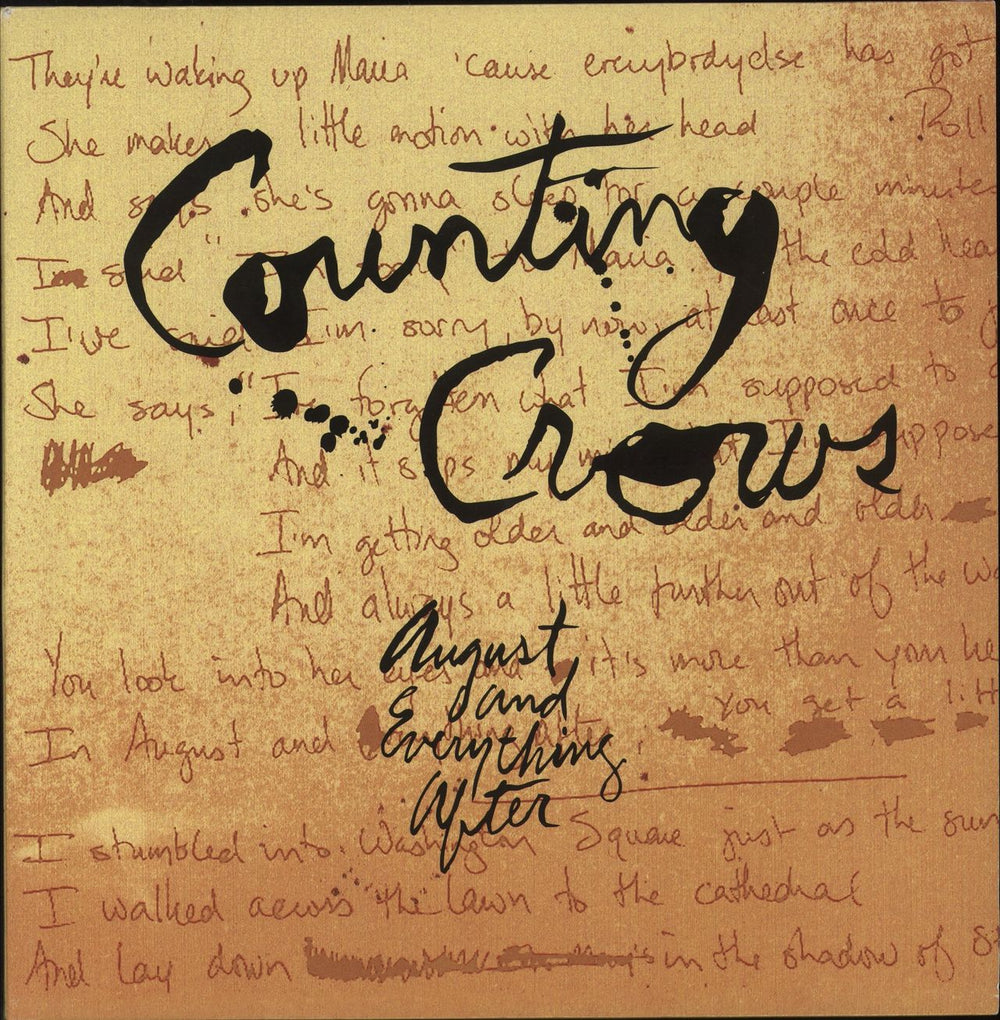 They're waking up Maria 'cause everybodyelse has got
She makes little motion with her head Roll
And says she's gonna sleep for a couple minutes
Counting
I'm said Maria the cold hea
I've said I'm sorry, by now, at least once to
Crows
She says, "I've forgotten what I'm supposed to
And it slips my mind but I'm suppose
I'm getting older and older and older
And always a little further out of the wa
August
and
Everything
After
You look into her eyes and it's more than your he
In August and Everything After, You get a litt
I stumbled into Washington Square just as the sun
I walked across the lawn to the cathedral
And lay down in the shadow of S